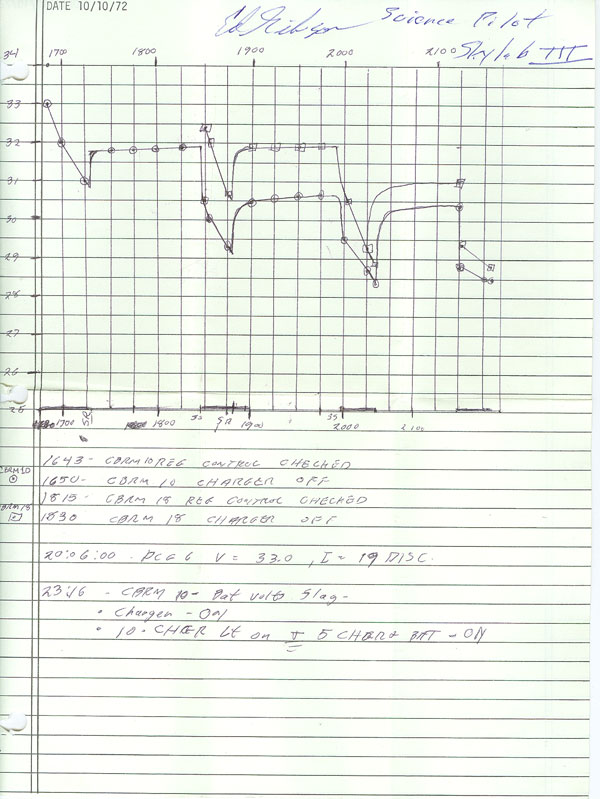 DATE 10/10/72
Ed Gibson Science Pilot
Skylab III
34 1700 1800 1900 2000 2100
33
32
31
30
29
28
27
26
25
1700 SR 1800 SS SR 1900 SS 2000 2100
1643 - CBRM 10 REG CONTROL CHECKED
CBRM 10 1650 - CBRM 10 CHARGER OFF
1815 - CBRM 18 REG CONTROL CHECKED
CBRM 18 1830 CBRM 18 CHARGER OFF
20:06:00 - PCG 6 V = 33.0, I = 19 DISC.
23:16 - CBRM 10 - Bat Volts 5lag -
• Charger - ON
• 10 - CHGR Lt on 5 CHGR & BAT - ON